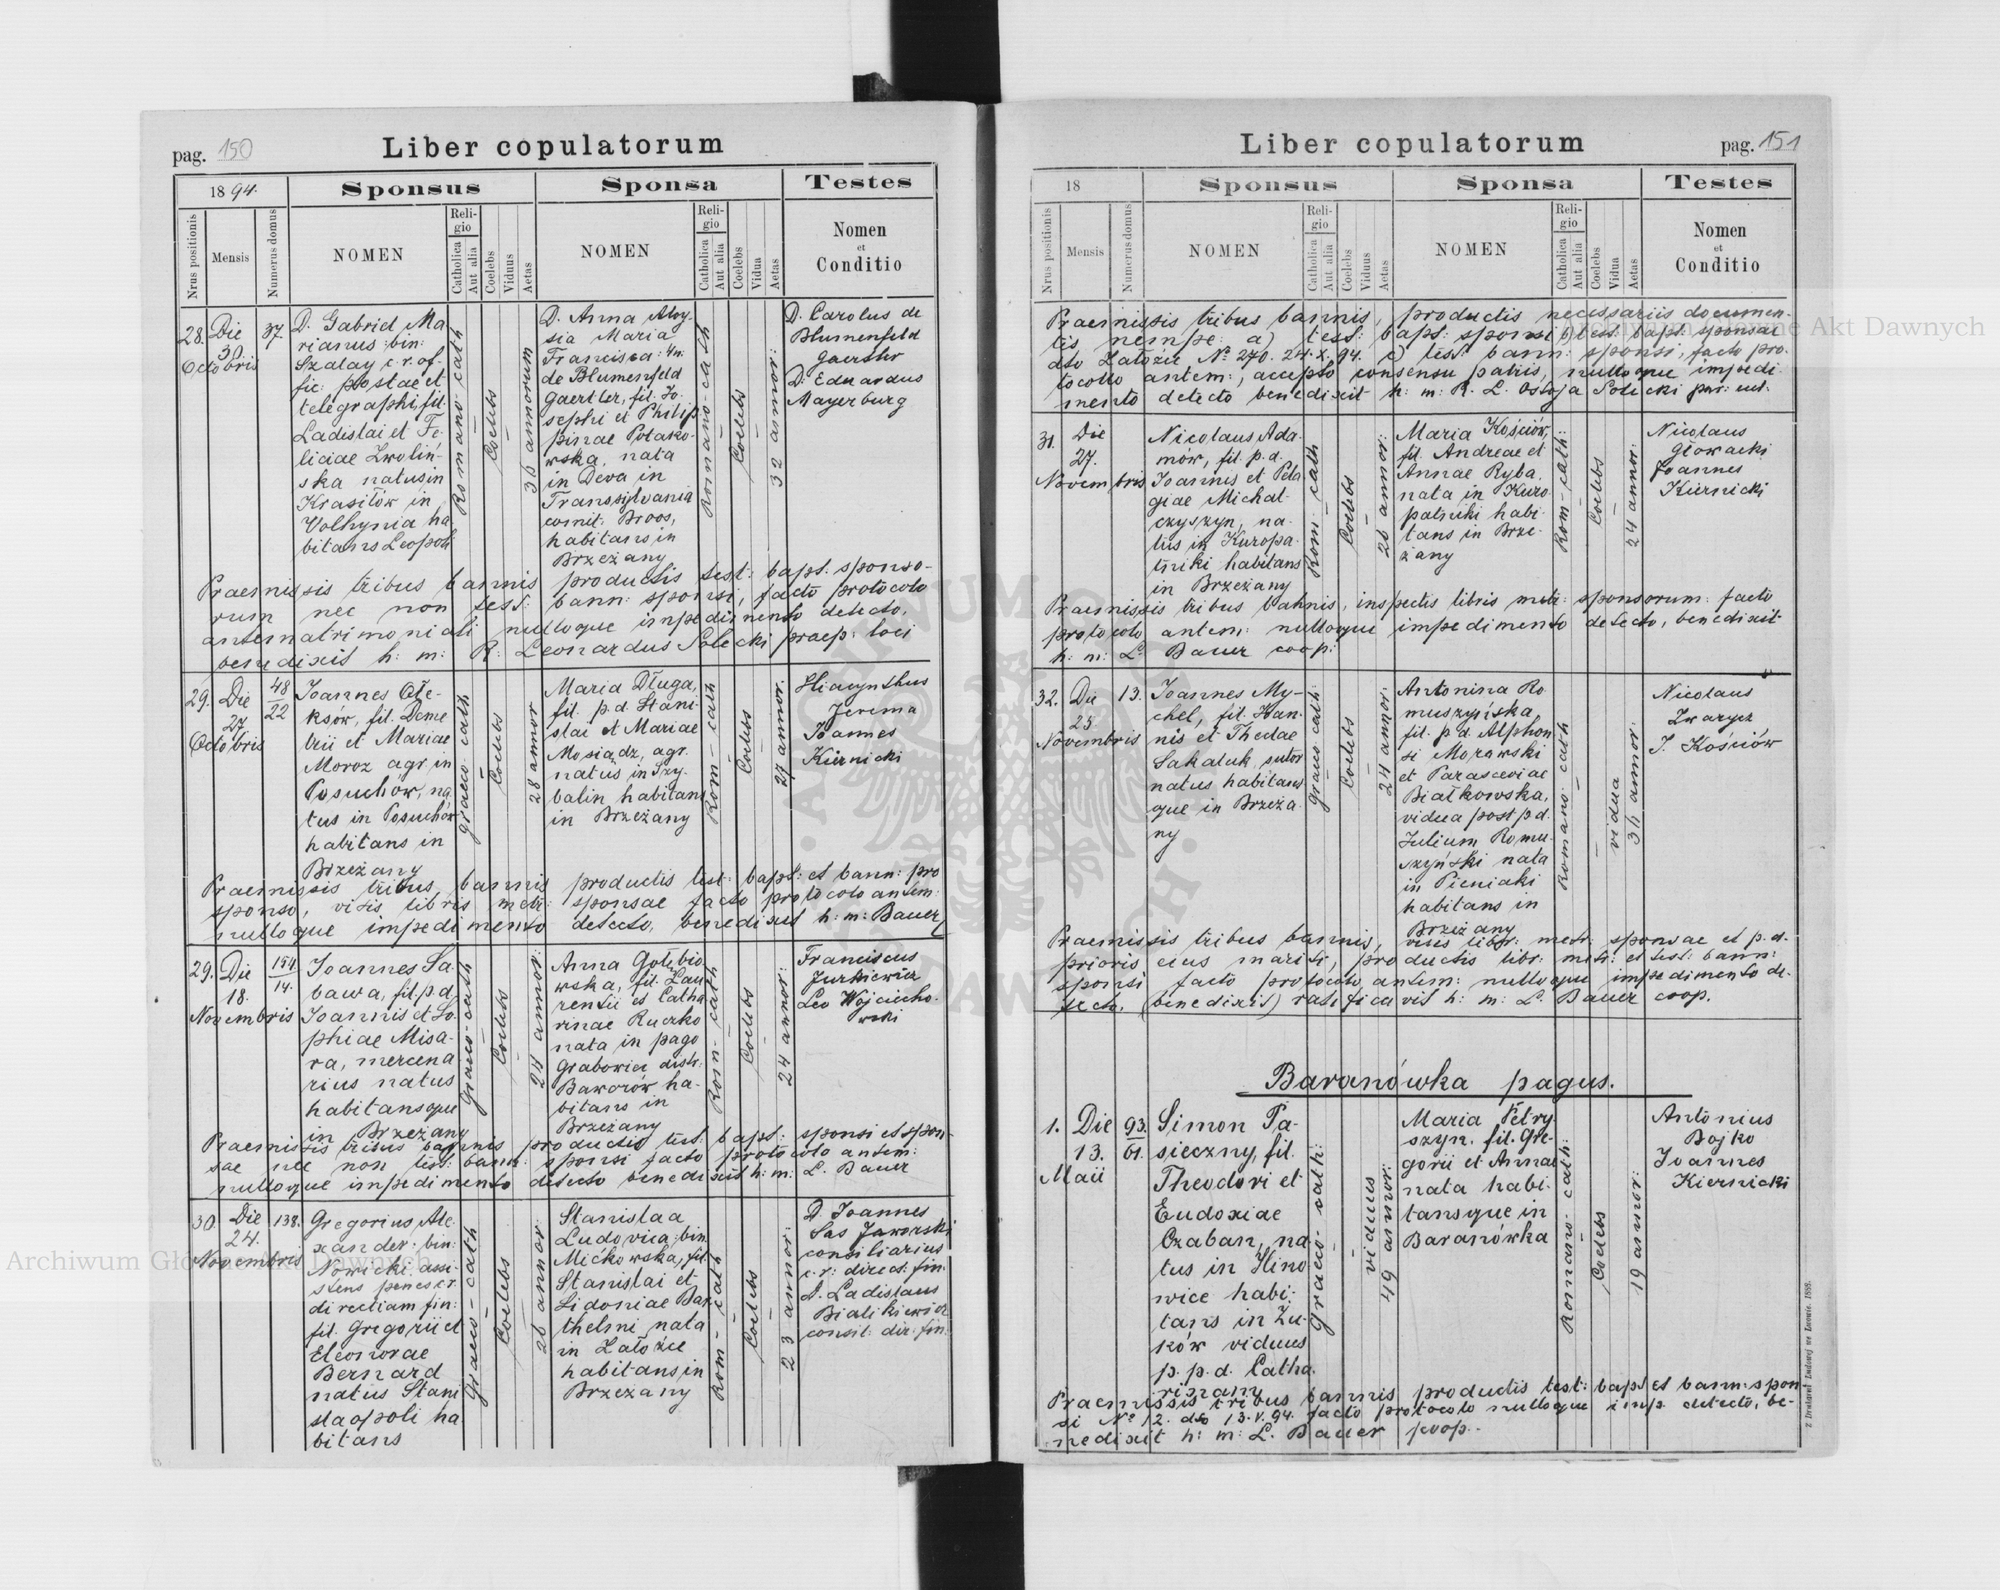 pag. 150
Liber copulatorum
1894.
Sponsus
Sponsa
Testes
Nrus positionis
Mensis
Numerus domus
NOMEN
Religio
Catholica
Aut alia
Coelebs
Viduus
Aetas
NOMEN
Religio
Catholica
Aut alia
Coelebs
Vidua
Aetas
Nomen
et
Conditio
28.
Die
30
Octobris
37.
D. Gabriel Ma
rianus bin:
Szalay c. r. of-
fic: postae et
telegraphi, fil.
Ladislai et Fe-
liciae Zwoliń-
ska natus in
Krasiłów in
Volhynia ha
bitans Leopoli
Romano-cath
Coelebs
36 annorum
D. Anna Aloy-
sia Maria
Francisca
de Blumenfeld
Gaertler, fil. Jo-
sephi et Philip-
pinae Polako-
wska, nata
in Deva in
Transsylvania
comit: Broos,
habitans in
Brzeżany
Romano-cath
Coelebs
32 annor:
D. Carolus de
Blumenfeld
Gaertler
D. Eduardus
Mayerburg
Praemissis tribus bannis productis test: bapt. sponso-
rum nec non test: bann: sponsi, facto protocolo
antematrimoniali nulloque impedimento detecto,
benedixit h: m: R: Leonardus Solecki praep: loci
29.
Die
27
Octobris
48
22
Joannes Ole-
ksów, fil. Deme
trii et Mariae
Moroz agr. in
Posuchów, na
tus in Posuchów
habitans in
Brzeżany
graeco-cath
Coelebs
28 annor
Maria Długa,
fil. p. d. Stani-
slai et Mariae
Mosiądz, agr.
nata in Szy-
balin, habitans
in Brzeżany
Rom-cath
Coelebs
27 annor.
Hiacynthus
Jerema
Joannes
Kiernicki
Praemissis tribus bannis productis test: bapt: et bann: pro
sponso, visis libris metr: sponsae facto protocolo antem:
nulloque impedimento detecto, benedixit h: m: Bauer
29.
Die
18.
Novembris
154
14.
Joannes Sa-
bawa, fil. p. d.
Joannis et So-
phiae Misa-
ra, mercena
rius natus
habitansque
in Brzeżany
Graeco-cath
Coelebs
24 annor:
Anna Gołębio
wska, fil. Lau
rentii et Catha
rinae Ruczko
nata in pago
Grabowiec distr:
Baworów ha-
bitans in
Brzeżany
Rom-cath
Coelebs
24 annor:
Franciscus
Jurkiewicz
Leo Wojciecho-
wski
Praemissis tribus bannis productis test: bapt: sponsi et spon-
sae nec non test: bann: sponsi facto protocolo antem:
nulloque impedimento detecto benedixit h: m: L. Bauer
30.
Die
24.
Novembris
138.
Gregorius Ale-
xander: bin:
Nowicki assi-
stens penes c. r.
directiam fin:
fil. Gregorii et
Eleonorae
Bernard
natus Stani
slaopoli ha
bitans
Graeco-cath
Coelebs
26 annor
Stanislaa
Ludovica: bin:
Mićkowska, fil.
Stanislai et
Sidoniae Bar-
thelmi nata
in Załoźce
habitans in
Brzeżany
Rom-cath
Coelebs
23 annor:
D. Joannes
Sas Jaworski
consiliarius
c. r: direct: fin.
D. Ladislaus
Bialikiewicz
consil: dir: fin:
Liber copulatorum
pag. 151
18
Sponsus
Sponsa
Testes
Nrus positionis
Mensis
Numerus domus
NOMEN
Religio
Catholica
Aut alia
Coelebs
Viduus
Aetas
NOMEN
Religio
Catholica
Aut alia
Coelebs
Vidua
Aetas
Nomen
et
Conditio
Praemissis tribus bannis, productis necessariis documen-
tis nempe: a) test: bapt: sponsi b) test: bapt: sponsae
dto Załoźce No 270. 24.X.94. c) test: bann: sponsi, facto pro-
tocollo antem:, accepto consensu patris, nulloque impedi-
mento detecto benedixit h: m: R. L. Ostoja Solecki
31.
Die
27.
Novembris
Nicolaus Ada-
mów, fil. p. d.
Joannis et Pela
giae Michal-
czyszyn, na-
tus in Kuropa-
tniki habitans
in Brzeżany
Rom: cath
Coelebs
26 annor:
Maria Kościów,
fil. Andreae et
Annae Ryba,
nata in Kuro
patniki habi-
tans in Brze-
żany
Rom-cath:
Coelebs
24 annor:
Nicolaus
Głowacki
Joannes
Kiernicki
Praemissis tribus bahnis, inspectis libris metr: sponsorum: facto
protocolo antem: nulloque impedimento detecto, benedixit
h: m: L. Bauer coop:
32.
Die
25
Novembris
13.
Joannes My-
chel, fil. Han-
nis et Theclae
Sakaluk, sutor
natus habitans
que in Brzeża-
ny
graeco cath:
Coelebs
24 annor:
Antonina Ro
muszyńska
fil. p. d. Alphon
si Morawski
et Parasceviae
Białkowska,
vidua post p. d.
Julium Romu-
szyński nata
in Pieniaki
habitans in
Brzeżany
Romano: cath
vidua
36 annor:
Nicolaus
Zwarycz
J. Kościów
Praemissis tribus bannis, visis libr: metr: sponsae et p. d.
prioris eius mariti, productis libr: metr: et test: bann:
sponsi facto protocolo antem: nulloque impedimento de-
tecto, (benedixit) ratificavit h: m: L. Bauer coop.
Baranówka pagus.
1.
Die
13.
Maii
93.
61.
Simon Pa-
sieczny, fil.
Theodori et
Eudoxiae
Czaban, na
tus in Hino
wice habi-
tans in Żu-
ków viduus
p. p. d. Catha
rinam
Graeco-cath:
viduus
49 annor:
Maria Petry-
szyn, fil. Gre-
gorii et Annae
nata habi-
tansque in
Baranówka
Romano-cath:
Coelebs
19 annor:
Antonius
Bojko
Joannes
Kiernicki
Praemissis tribus bannis productis test: bapt et bann: spon-
si No 12. dto 13.V.94. facto protocolo nulloque imp. detecto, be-
nedixit h: m: L. Bauer coop.
Z Drukarni Ludowej we Lwowie. 1888.
Archiwum Główne Akt Dawnych
Archiwum Główne Akt Dawnych